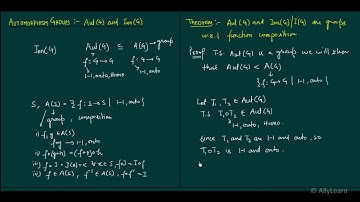 Automorphism Groups :- Aut(G) and Inn(G)
Inn(G) Aut(G) ⊆ A(G) → group
f: G → G f: G → G
1-1, onto, Homo 1-1, onto
S, A(S) = { f: S → S | 1-1, onto }
group, composition
i) f, g ∈ A(S)
fog → 1-1, onto
ii) fo(goh) = (fog)oh
iii) f = I
iv) f ∈ A(S), f⁻¹ ∈ A(S)
Theorem :- Aut(G) and Inn(G)/I(G) are groups
w.r.t function composition.
Proof T.S. Aut(G) is a group we will show
that Aut(G) < A(G)
{ f: G → G | 1-1, onto }
Let T₁, T₂ ∈ Aut(G)
T.S. T₁OT₂ ∈ Aut(G)
1-1, onto, Homo.
Since T₁ and T₂ are 1-1 and onto, so
T₁OT₂ is 1-1 and onto.
© AllyLearn